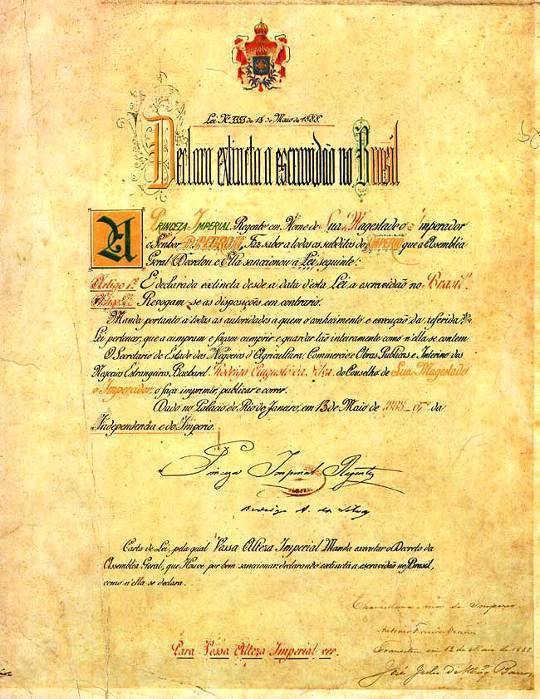 Lei N. 3353 de 13 de Maio de 1888.
Declara extincta a escravidão no Brasil
A PRINCEZA IMPERIAL, Regente em Nome de Sua Magestade o Imperador
o Senhor D. PEDRO II, Faz saber a todos os subditos do IMPERIO que a Assembléa
Geral Decretou e Ella sanccionou a Lei seguinte:
Artigo 1º É declarada extincta desde a data d'esta Lei a escravidão no Brasil.
Artigo 2º Revogam-se as disposições em contrario.
Manda portanto a todas as autoridades a quem o conhecimento e execução da referida
Lei pertencer, que a cumpram e façam cumprir e guardar tão inteiramente como n'ella se contem.
O Secretario de Estado dos Negocios d'Agricultura, Commercio e Obras Publicas e Interino dos
Negocios Estrangeiros, Bacharel Rodrigo Augusto da Silva, do Conselho de Sua Magestade
o Imperador, o faça imprimir, publicar e correr.
Dado no Palacio do Rio de Janeiro, em 13 de Maio de 1888 - 67º da
Independencia e do Imperio.
Princeza Imperial Regente
Rodrigo A. da Silva
Carta de Lei, pela qual Vossa Alteza Imperial Manda executar o Decreto da
Assembléa Geral, que Houve por bem sanccionar, declarando extincta a escravidão no Brasil,
como n'ella se declara.
Chancellaria-mór do Imperio
Antonio Ferreira Vianna
Transitou em 13 de Maio de 1888
Para Vossa Alteza Imperial ver.
José Julio de Albuq. Barros